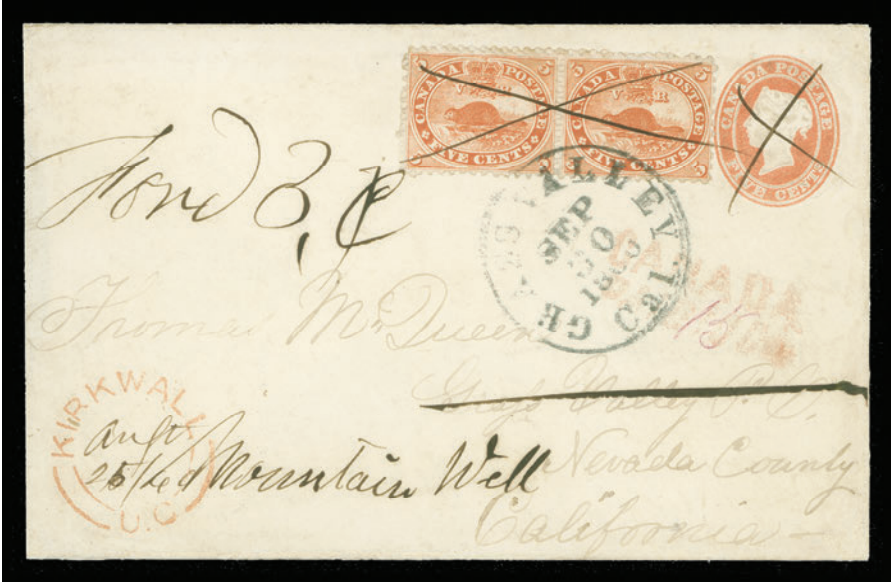 CANADA POSTAGE
V R
FIVE CENTS
5 5
CANADA POSTAGE
V R
FIVE CENTS
5 5
CANADA POSTAGE
FIVE CENTS
Forwd 3,
GRASS VALLEY Cal.
SEP
30
1860
CANADA
15
Thomas McQueen
Grass Valley P.O.
Nevada County
California
KIRKWALL
U.C
Augt
25/60
Mountain Well